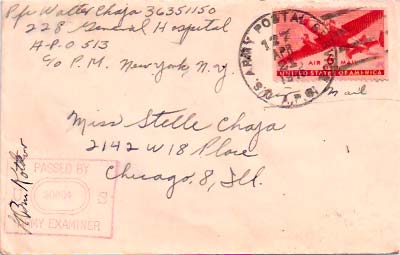 Pfc Walter Chaja 36351150
228 General Hospital
A.P.O 513
c/o P.M. New York, N.Y.
U.S. ARMY POSTAL
A.P.O.
127
APR
AIR MAIL
6¢
UNITED STATES OF AMERICA
Mail
Miss Stelle Chaja
2142 W 18 Place
Chicago, 8, Ill.
PASSED BY
ARMY EXAMINER